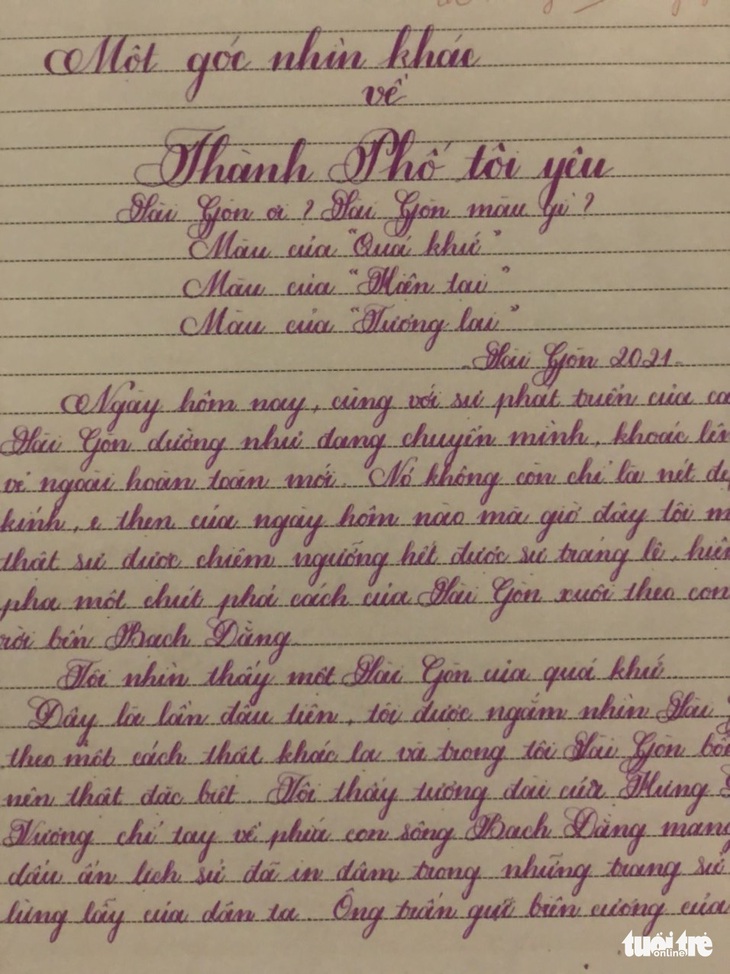 Một góc nhìn khác
về
Thành Phố tôi yêu
Sài Gòn ơi ? Sài Gòn màu gì ?
Màu của "Quá khứ"
Màu của "Hiện tại"
Màu của "Tương lai"
Sài Gòn 2021.
Ngày hôm nay, cùng với sự phát triển của cá
Sài Gòn dường như đang chuyển mình, khoác lên
vẻ ngoài hoàn toàn mới. Nó không còn chỉ là nét đẹ
kính, e thẹn của ngày hôm nào mà giờ đây tôi m
thật sự được chiêm ngưỡng hết được sự tráng lệ, hiện
pha một chút phá cách của Sài Gòn xuôi theo con
rời bến Bạch Đằng
Tôi nhìn thấy một Sài Gòn của quá khứ.
Đây là lần đầu tiên, tôi được ngắm nhìn Sài
theo một cách thật khác lạ và trong tôi Sài Gòn bỗ
nên thật đặc biệt. Tôi thấy tượng đài của Hưng
Vương chỉ tay về phía con sông Bạch Đằng mang
dấu ấn lịch sử đã in đậm trong những trang sử
lừng lẫy của dân ta. Ông trấn giữ biên cương của
tuổi trẻ
online